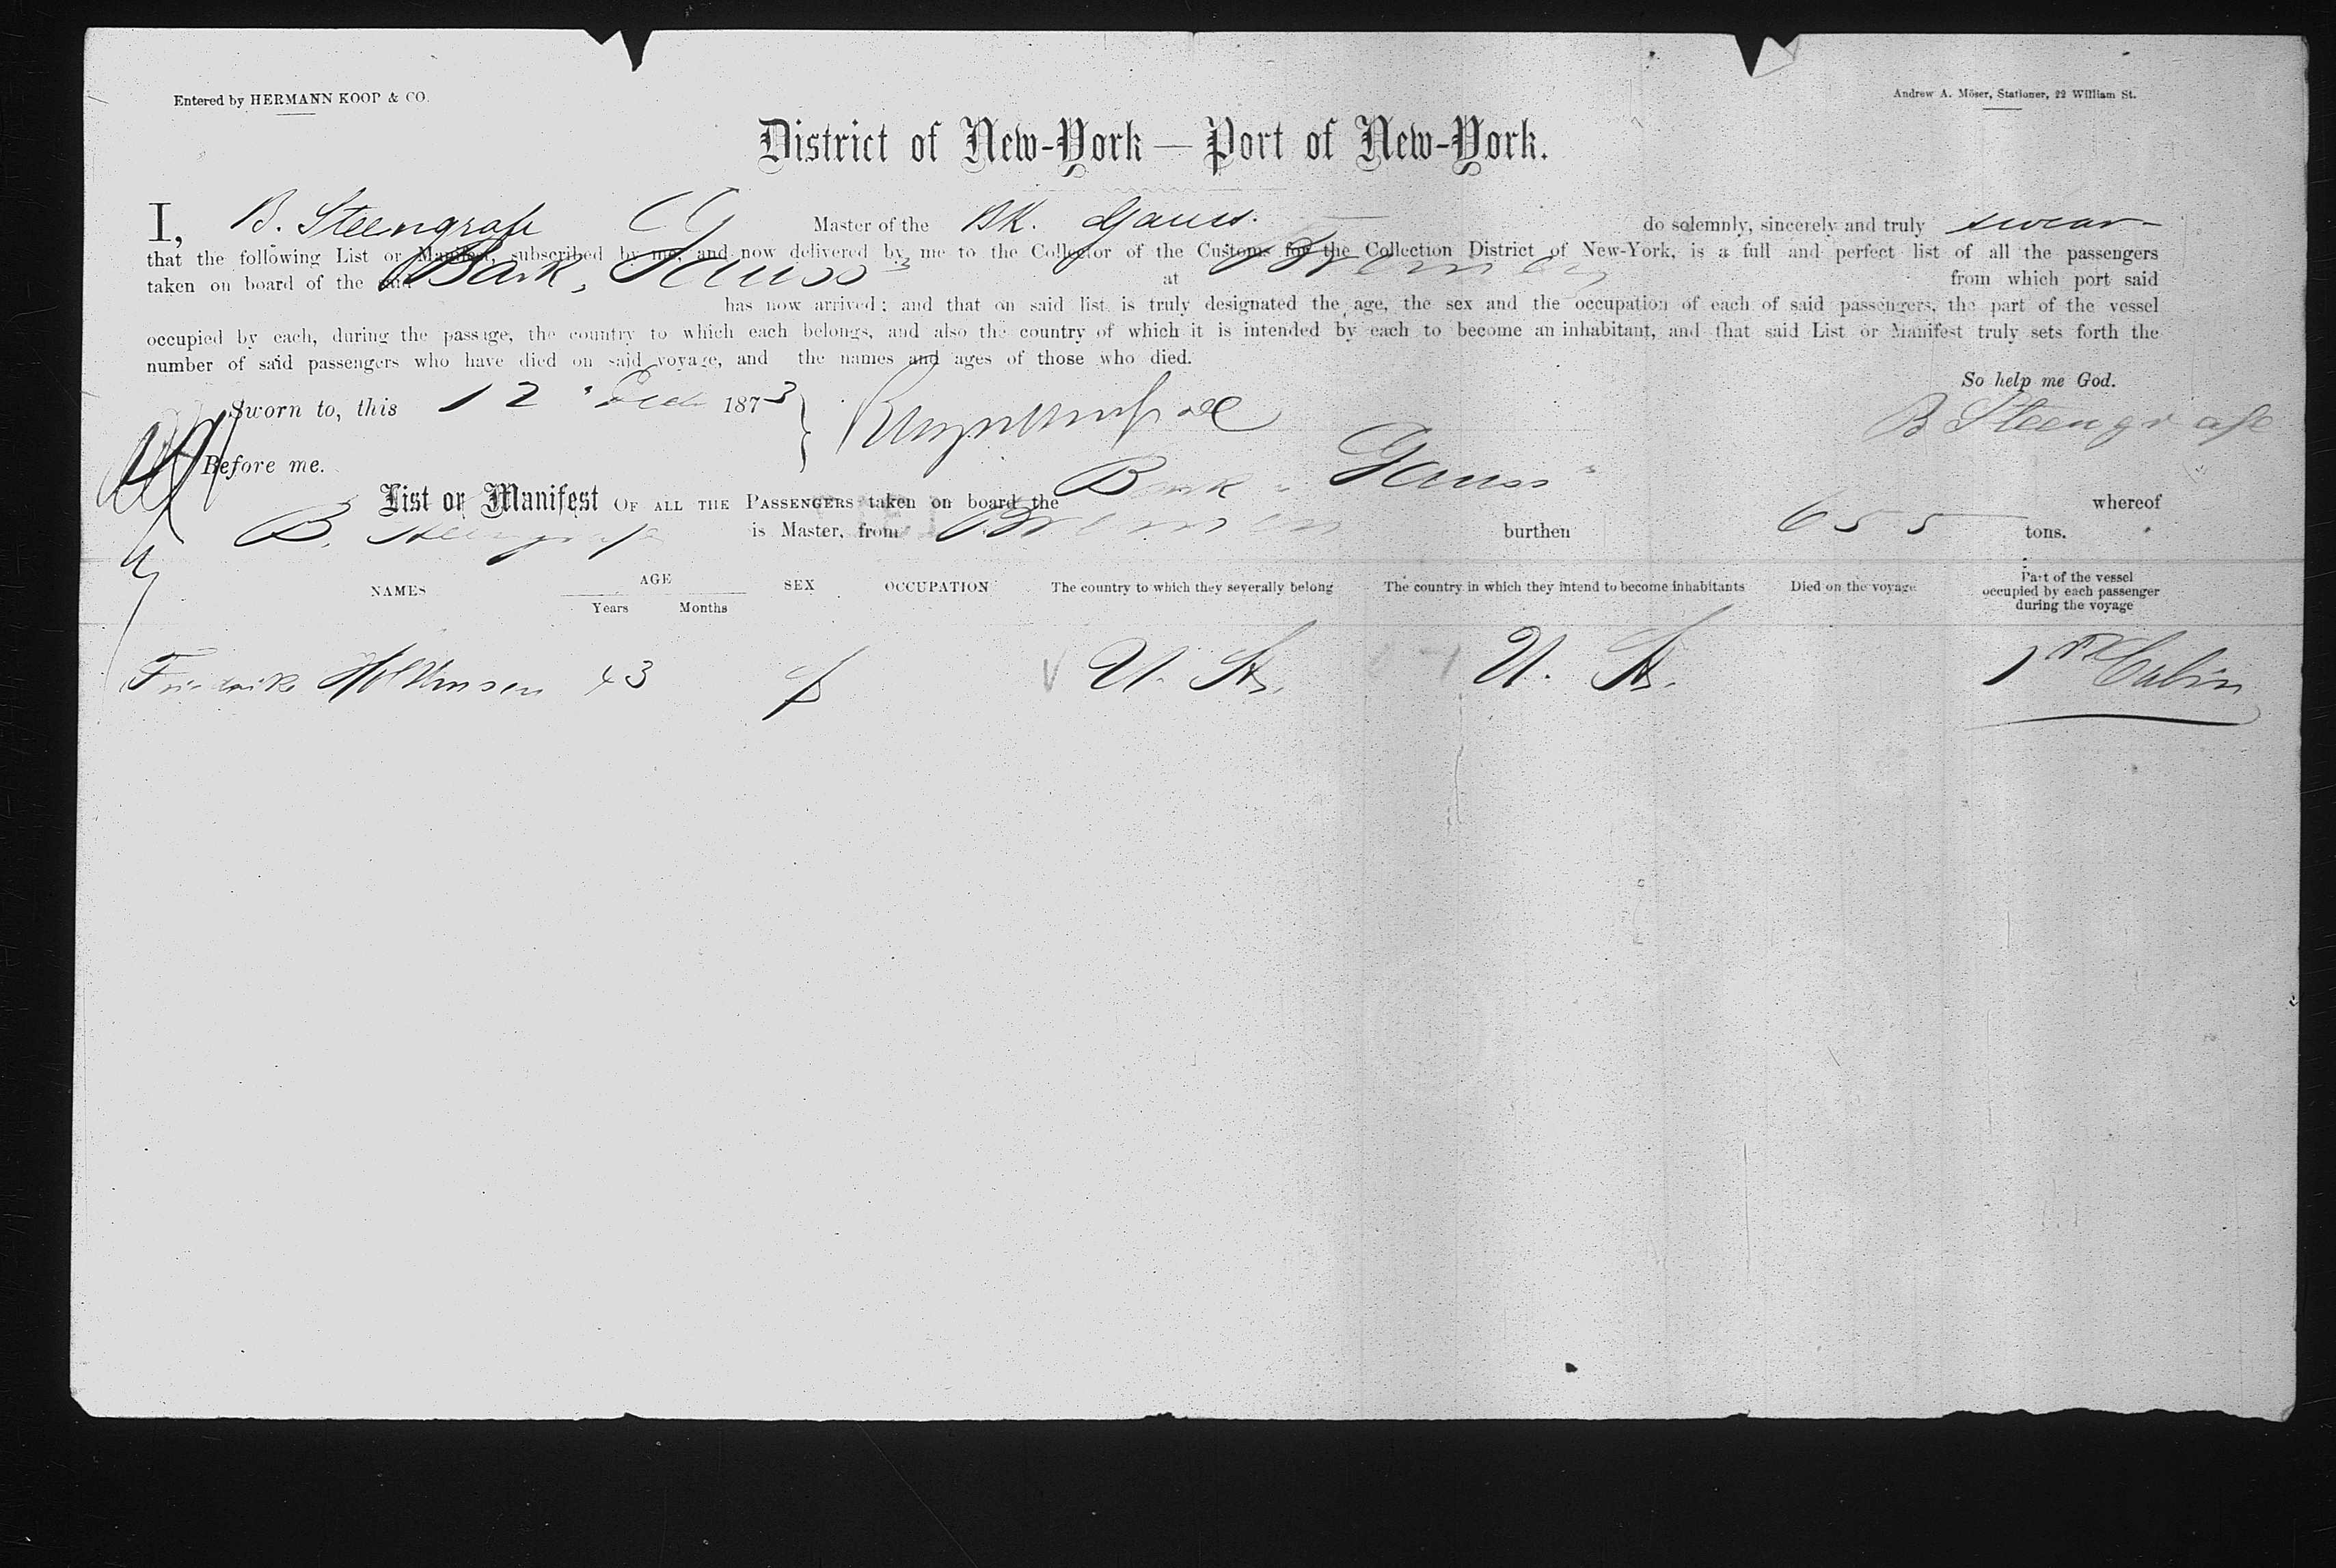 Entered by HERMANN KOOP & CO.
Andrew A. Möser, Stationer, 22 William St.
District of New-York — Port of New-York.
I, B. Steengrafe Master of the Bk. Gauss. do solemnly, sincerely and truly swear
that the following List or Manifest, subscribed by me, and now delivered by me to the Collector of the Customs for the Collection District of New-York, is a full and perfect list of all the passengers
taken on board of the said Bark „Gauss" at Bremen from which port said
has now arrived; and that on said list is truly designated the age, the sex and the occupation of each of said passengers, the part of the vessel
occupied by each, during the passage, the country to which each belongs, and also the country of which it is intended by each to become an inhabitant, and that said List or Manifest truly sets forth the
number of said passengers who have died on said voyage, and the names and ages of those who died.
So help me God.
Sworn to, this 12 1873
B Steengrafe
Before me.
List or Manifest OF ALL THE PASSENGERS taken on board the Bark „Gauss" whereof
B. Steengrafe is Master, from Bremen burthen 655 tons.
NAMES AGE Years Months SEX OCCUPATION The country to which they severally belong The country in which they intend to become inhabitants Died on the voyage Part of the vessel occupied by each passenger during the voyage
Friedrike 43 f U. Sts. U. Sts. 1st Cabin